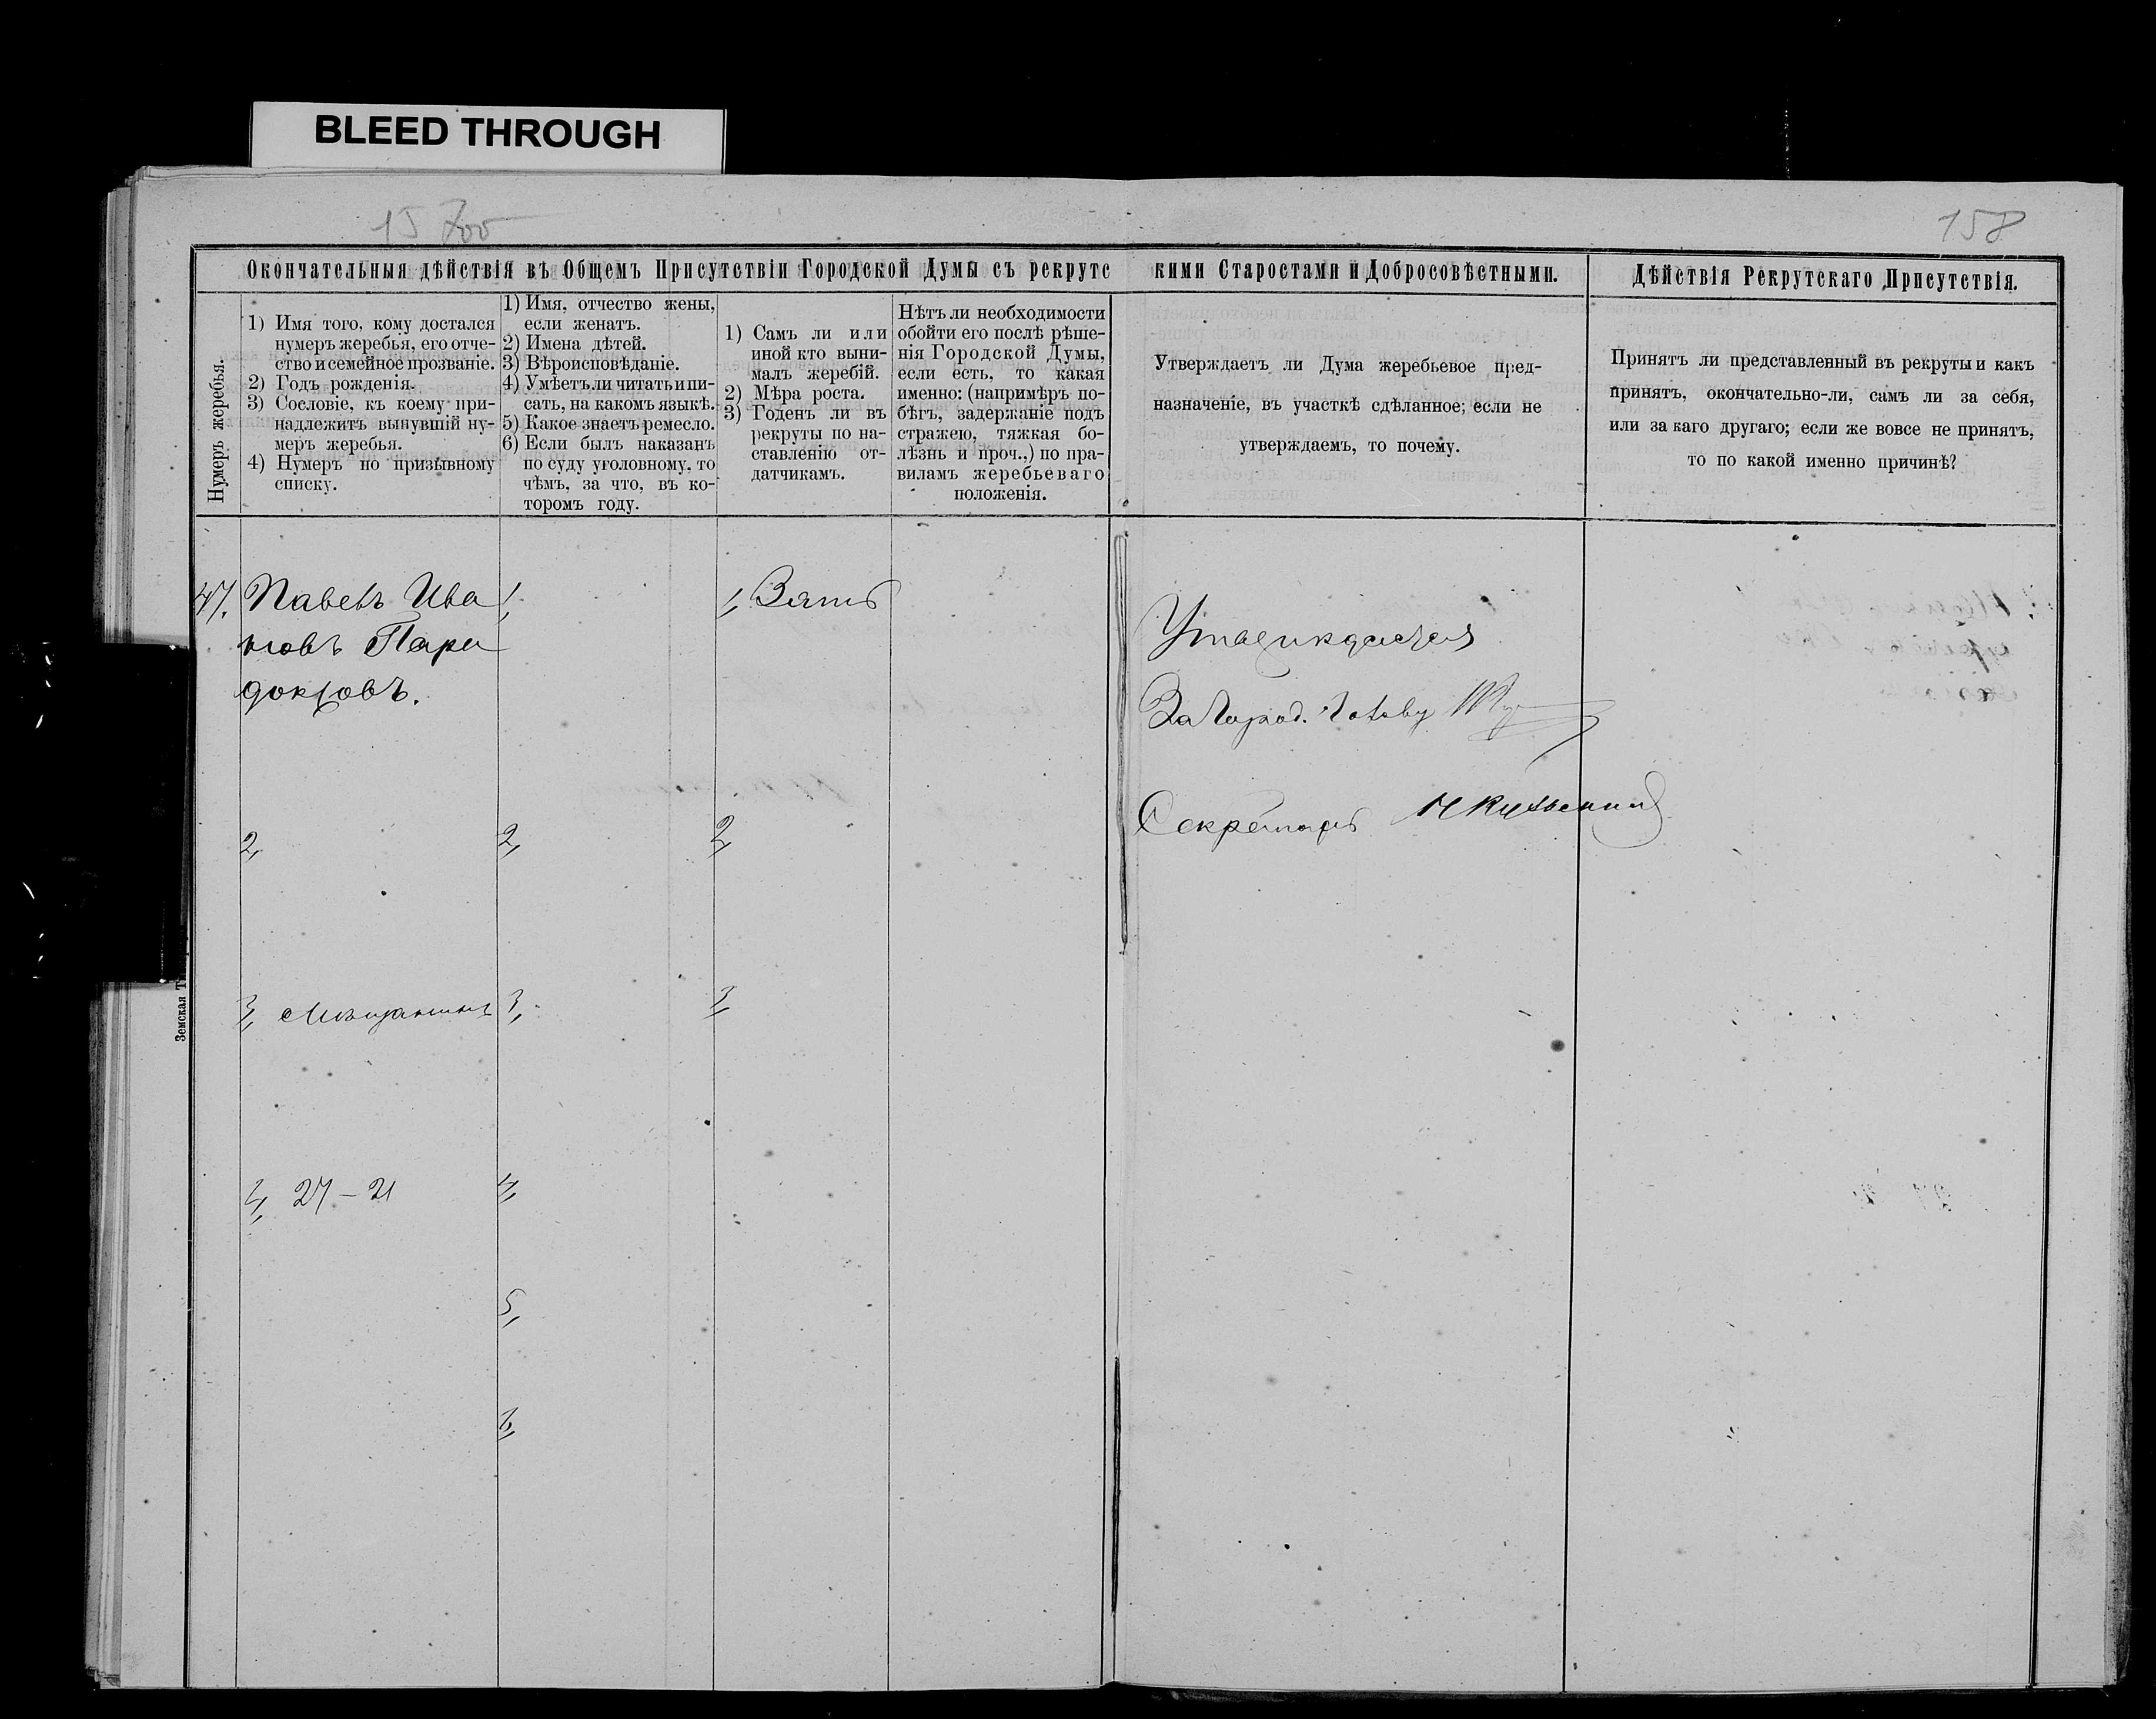 BLEED THROUGH
15 700
158
Окончательныя дѣйствія въ Общемъ Присутствіи Городской Думы съ рекрутс
кими Старостами и Добросовѣстными.
Дѣйствія Рекрутскаго Присутствія.
Нумеръ жеребья.
1) Имя того, кому достался
нумеръ жеребья, его отче-
ство и семейное прозваніе.
2) Годъ рожденія.
3) Сословіе, къ коему при-
надлежитъ вынувшій ну-
меръ жеребья.
4) Нумеръ по призывному
списку.
1) Имя, отчество жены,
если женатъ.
2) Имена дѣтей.
3) Вѣроисповѣданіе.
4) Умѣетъ ли читать и пи-
сать, на какомъ языкѣ.
5) Какое знаетъ ремесло.
6) Если былъ наказанъ
по суду уголовному, то
чѣмъ, за что, въ ко-
торомъ году.
1) Самъ ли или
иной кто выни-
малъ жеребій.
2) Мѣра роста.
3) Годенъ ли въ
рекруты по на-
ставленію от-
датчикамъ.
Нѣтъ ли необходимости
обойти его послѣ рѣше-
нія Городской Думы,
если есть, то какая
именно: (напримѣръ по-
бѣгъ, задержаніе подъ
стражею, тяжкая бо-
лѣзнь и проч.,) по пра-
виламъ жеребьеваго
положенія.
Утверждаетъ ли Дума жеребьевое пред-
назначеніе, въ участкѣ сдѣланное; если не
утверждаемъ, то почему.
Принятъ ли представленный въ рекруты и какъ
принятъ, окончательно-ли, самъ ли за себя,
или за каго другаго; если же вовсе не принятъ,
то по какой именно причинѣ?
47.
Павелъ Ива
новъ Пара
доксовъ.
2,
3, Мѣщанинъ
4, 27 – 21
1,
2,
3,
4,
5,
6,
1, Зять
2,
3,
Утверждается
За Город. Голову
Секретарь
Земская